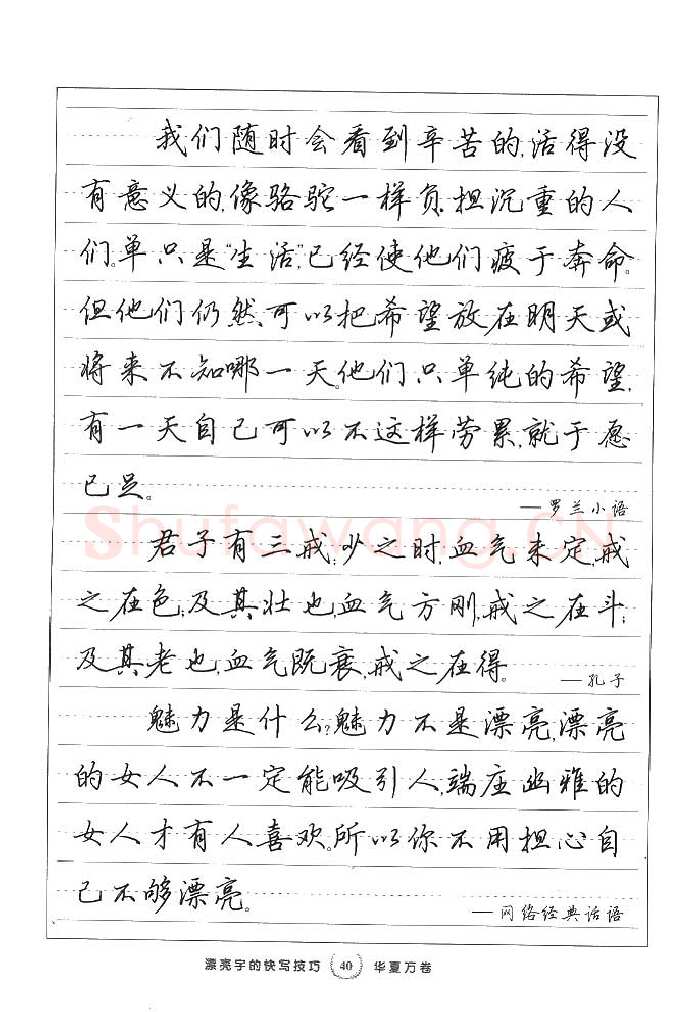 我们随时会看到辛苦的,活得没
有意义的,像骆驼一样负担沉重的人
们。单只是“生活”,已经使他们疲于奔命。
但他们仍然可以把希望放在明天或
将来不知哪一天。他们只单纯的希望,
有一天自己可以不这样劳累,就于愿
已足。
——罗兰小语
Shufawang.CN
君子有三戒:少之时,血气未定,戒
之在色;及其壮也,血气方刚,戒之在斗;
及其老也,血气既衰,戒之在得。
——孔子
魅力是什么?魅力不是漂亮,漂亮
的女人不一定能吸引人,端座幽雅的
女人才有人喜欢。所以你不用担心自
己不够漂亮。
——网络经典话语
漂亮字的快写技巧 40 华夏万卷